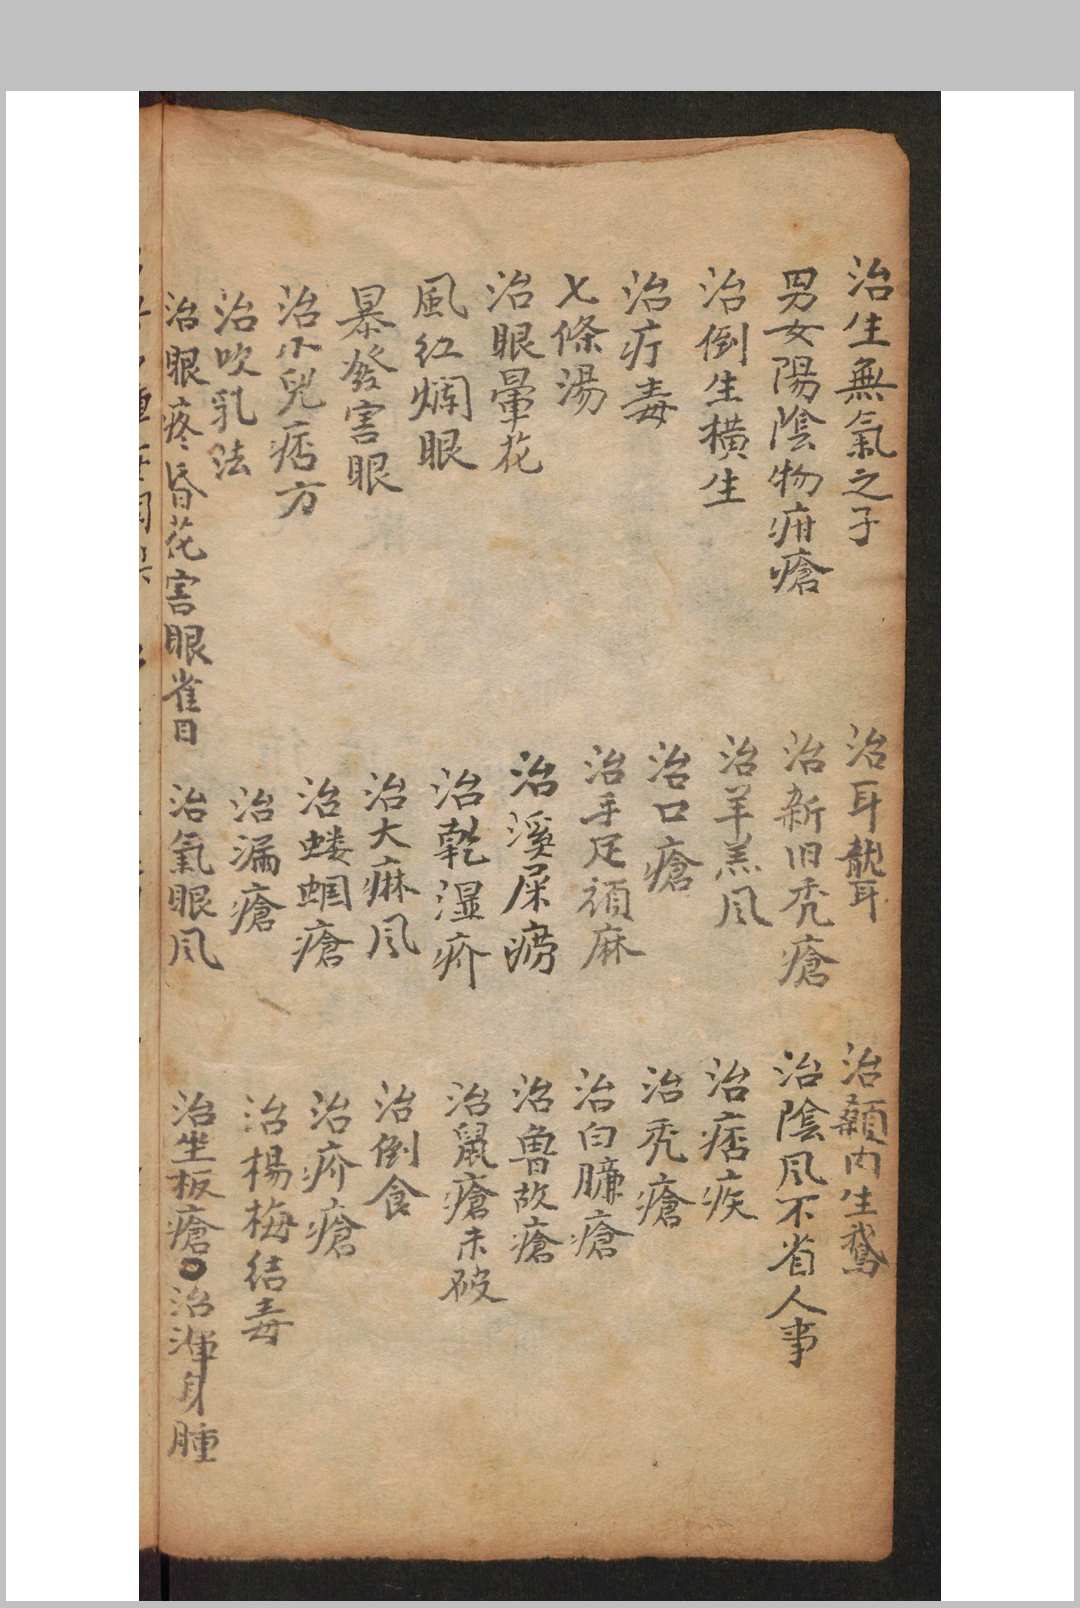 治生無氣之子
男女陽陰物疳瘡
治倒生横生
治疔毒
七條湯
治眼暈花
風红爛眼
暴發害眼
治小兒痞方
治吹乳法
治眼疼昏花害眼雀目
治耳聾
治新旧秃瘡
治羊羔风
治口瘡
治手足頑麻
治溪屎癆
治乾湿疥
治大麻风
治蝼蝈瘡
治漏瘡
治氣眼风
治顙内生鵞
治陰风不省人事
治痞疾
治秃瘡
治白臁瘡
治魯故瘡
治鼠瘡未破
治倒食
治疥瘡
治楊梅结毒
治坐板瘡○治渾身腫